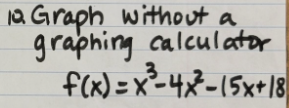 10. Graph without a
graphing calculator
f(x)=x³-4x²-15x+18